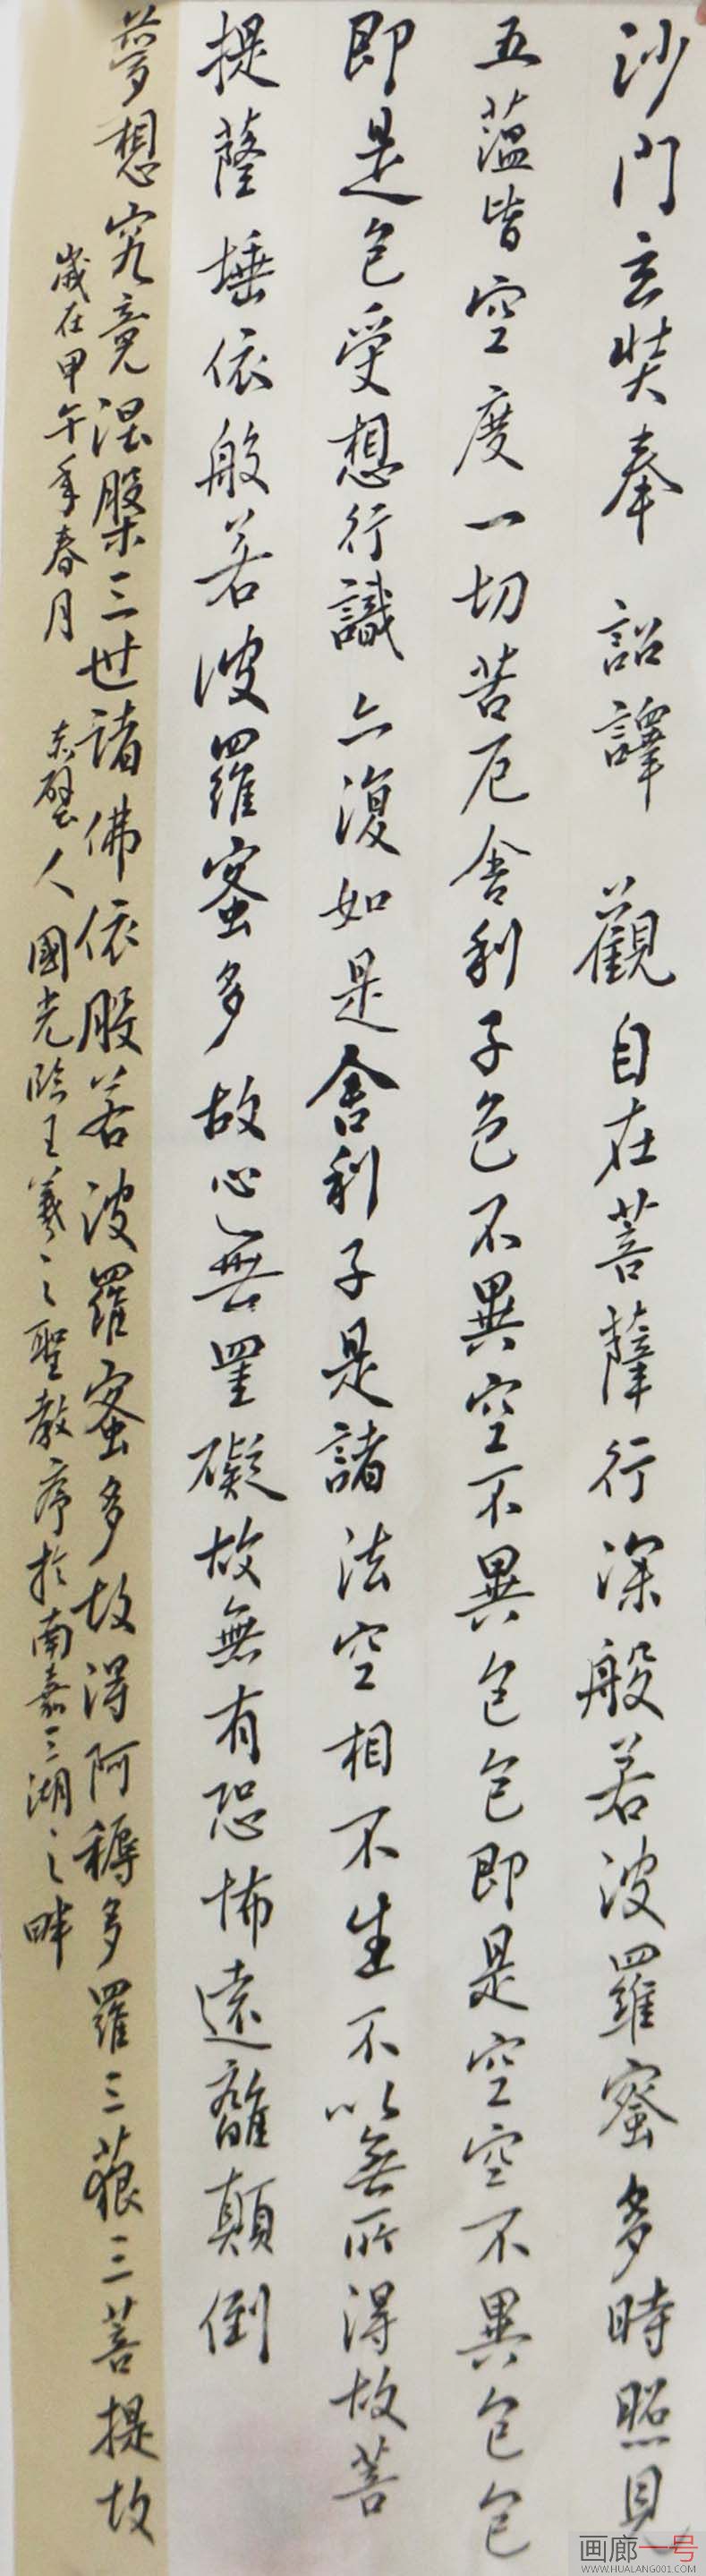 沙門玄奘奉 詔譯 觀自在菩薩行深般若波羅蜜多時照見
五蘊皆空度一切苦厄舍利子色不異空不異色色即是空空不異色色
即是色受想行識亦復如是舍利子是諸法空相不生不以無所得故菩
提薩埵依般若波羅蜜多故心無罣礙故無有恐怖遠離顛倒
夢想究竟涅槃三世諸佛依般若波羅蜜多故得阿耨多羅三藐三菩提故
歲在甲午年春月 赤壁人國光臨王羲之聖教序於南嘉三湖之畔
画廊一号
WWW.HUALANG001.COM